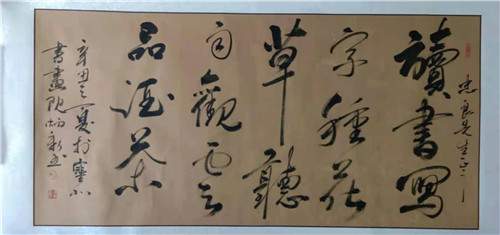 忠良先生正之
讀書寫
字種花
草聽
雨觀雲
品酒茶
辛丑之夏於塞北
書畫院